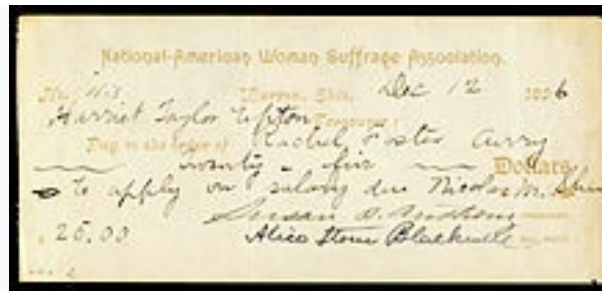 National-American Woman Suffrage Association.
No. Warren, Ohio, Dec 12 1896
Harriet Taylor Upton Treasurer:
Pay to the order of Rachel Foster Avery
twenty-five Dollars
to apply on salary due Nicolas M.
Susan B. Anthony
$25.00 Alice Stone Blackwell